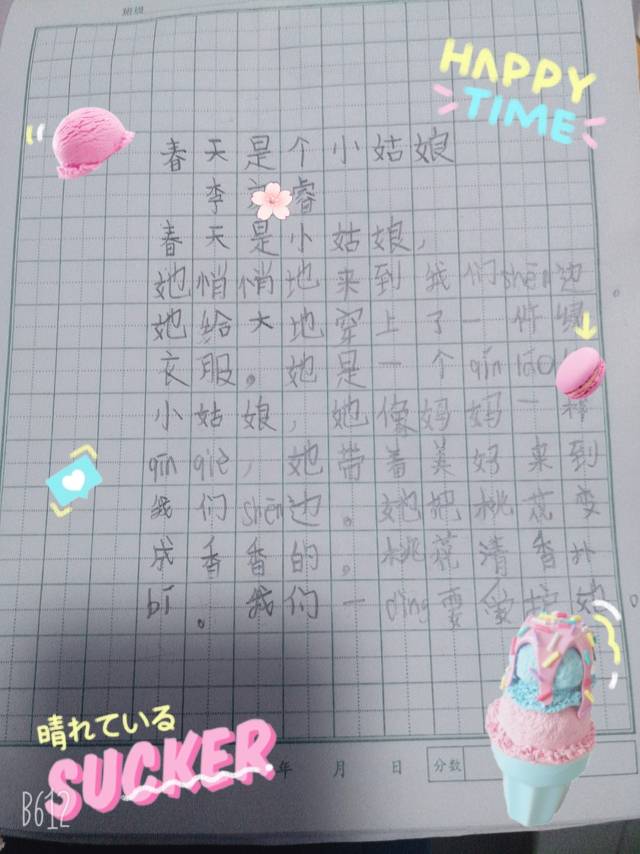 班级
HAPPY
TIME
春天是个小姑娘
李睿
春天是小姑娘，
她悄悄地来到我们shēn边
她给大地穿上了一件绿
衣服。她是一个qín láo
小姑娘，她像妈妈一样
qīn qiè，她带着美好来到
我们shēn边。她把桃花变
成香香的。桃花清香扑
bí。我们一dìng要爱护她。
晴れている
SUCKER
年 月 日 分数
B612